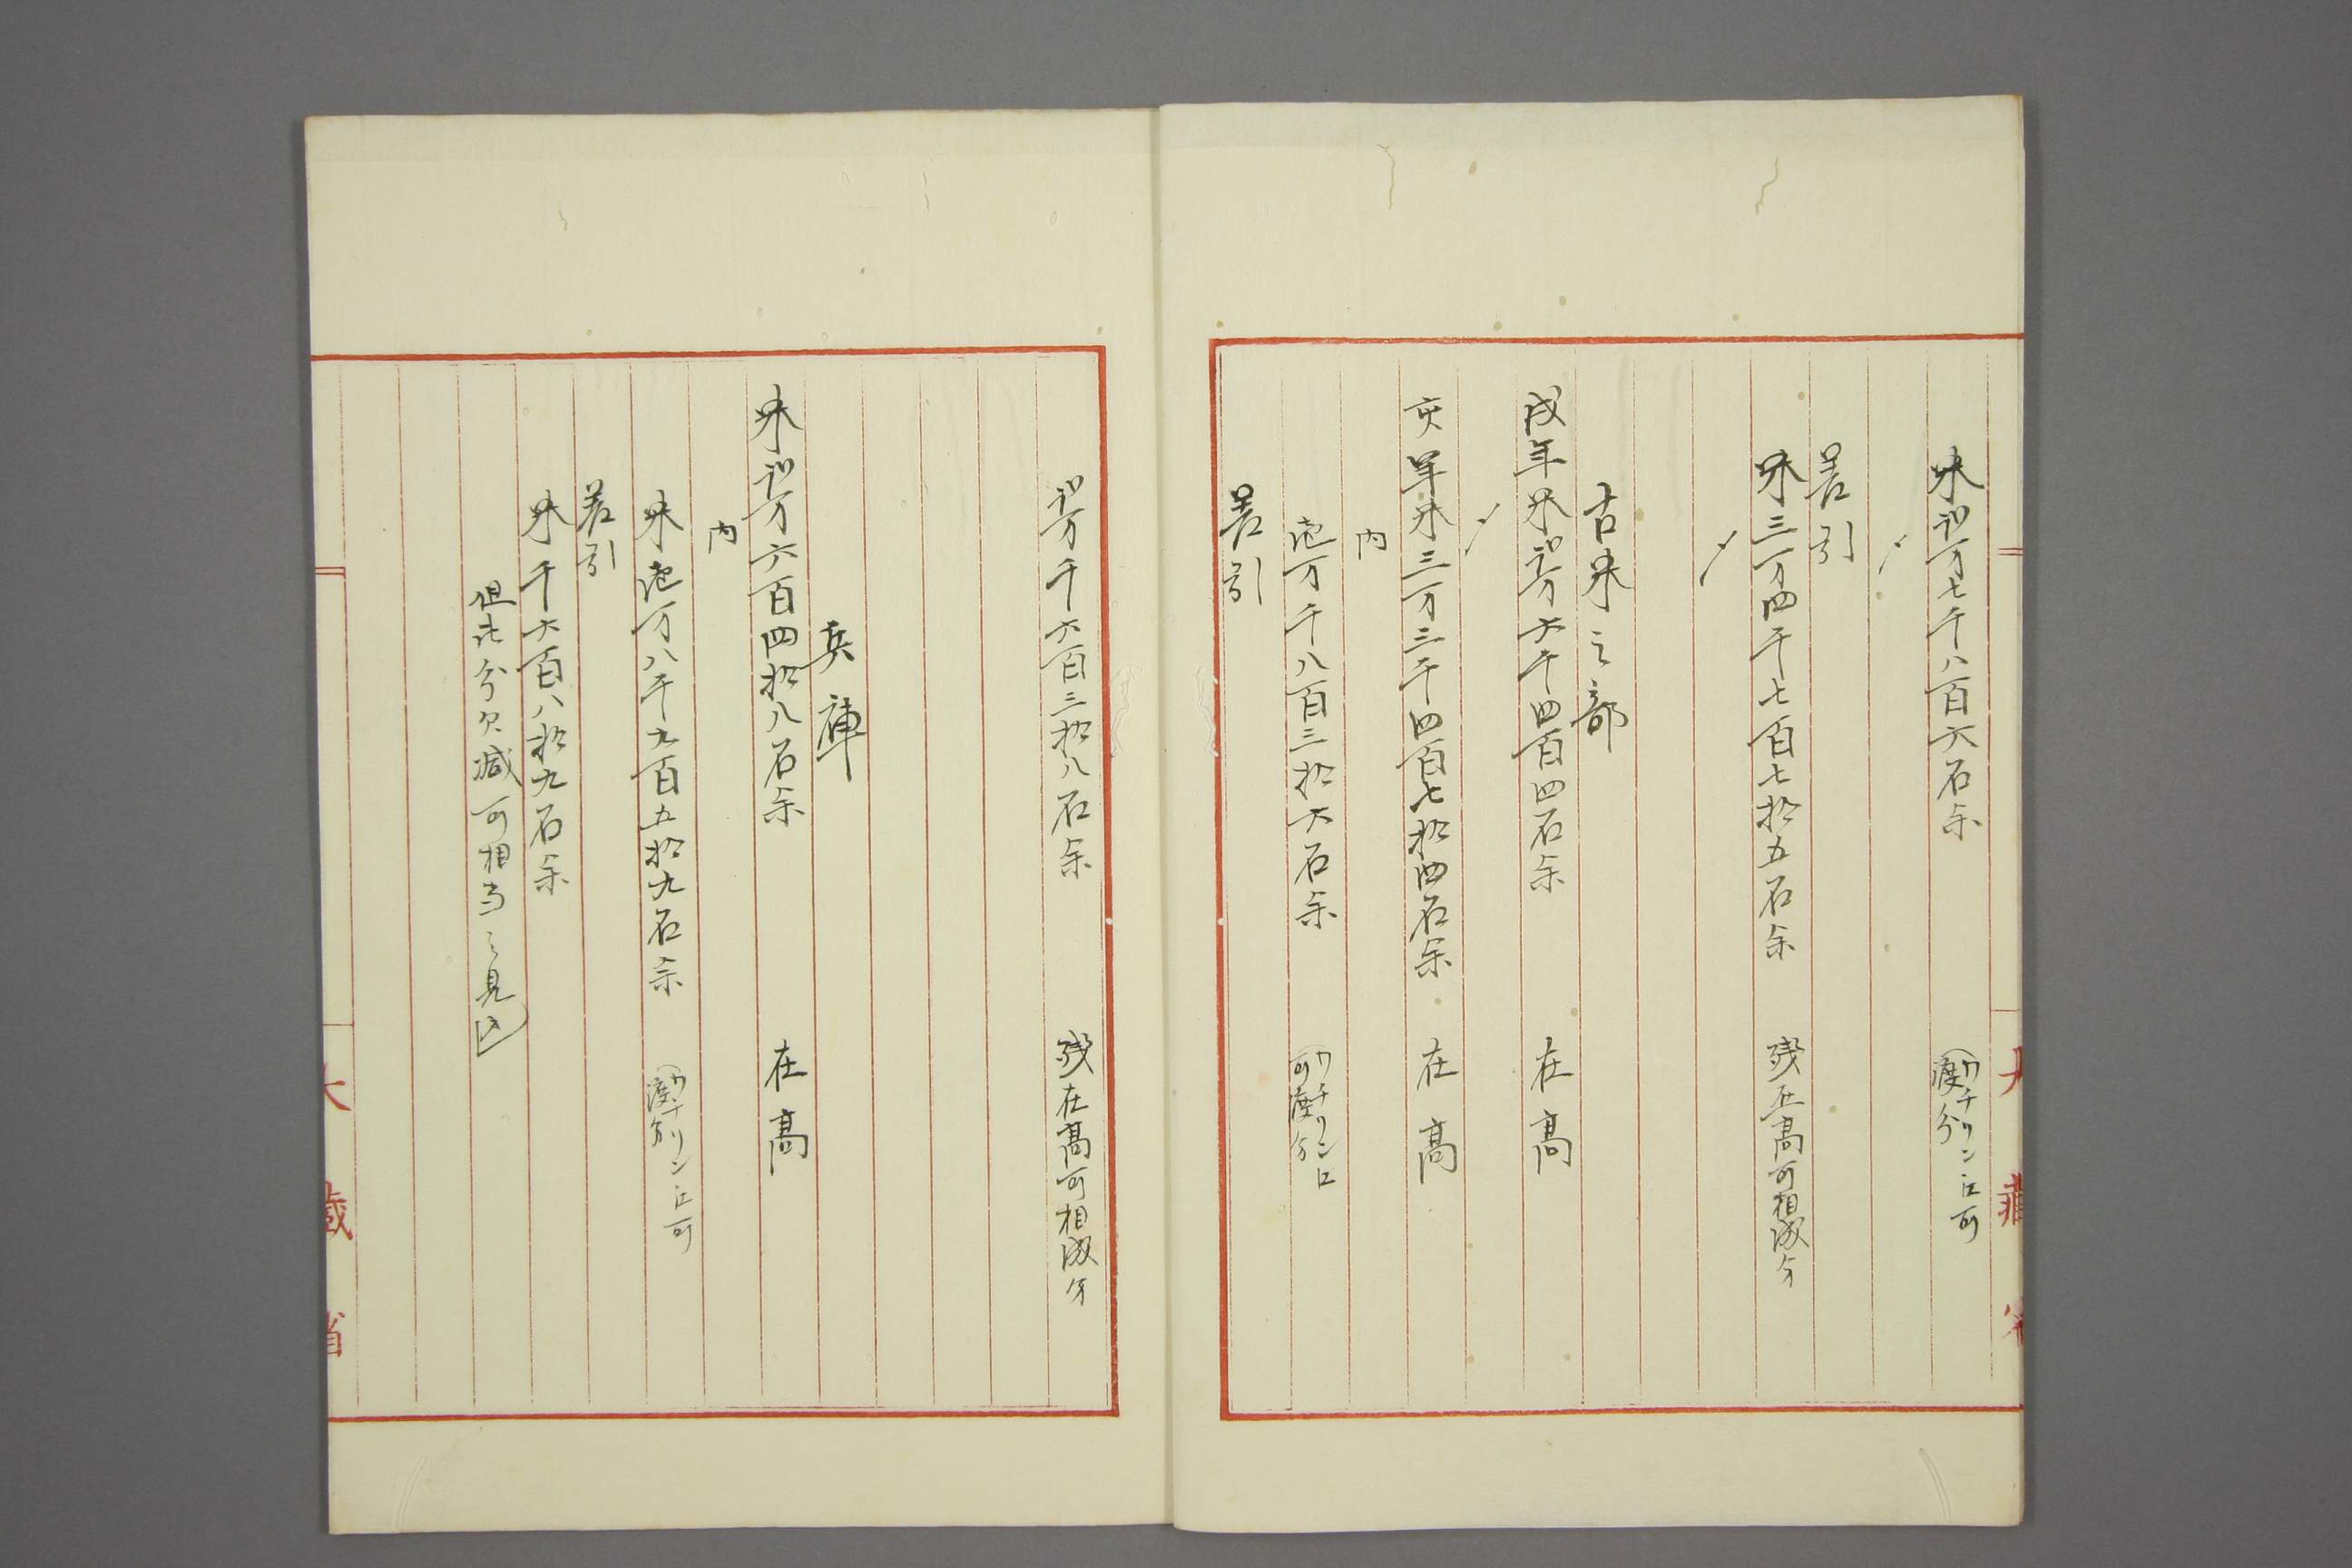 米弐万七千八百六石余 ワチソン江可渡分
〆
差引
米三万四千七百七拾五石余 残在高可相成分
〆
古米之部
戌年米弐万六千四百四石余 在高
〆
亥年米三万三千四百七拾四石余 在高
内
壱万千八百三拾六石余 ワチソン江可渡分
差引
弐万千六百三拾八石余 残在高可相成分
兵庫
米弐万六百四拾八石余 在高
内
米壱万八千九百五拾九石余 ワチソン江可渡分
差引
米千六百八拾九石余
但此分欠減可相当之見込
大藏省